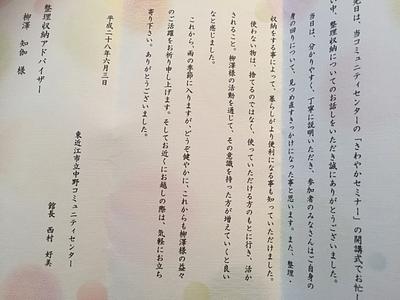 先日は、当コミュニティセンターの「さわやかセミナー」の開講式でお忙し
い中、整理収納についてのお話しをいただき誠にありがとうございました。
当日は、分かりやすく、丁寧に説明いただき、参加者のみなさんはご自身の
身の回りについて、見つめ直すきっかけになった事と思います。また、整理・
収納をする事によって、暮らしがより便利になる事も知っていただけました。
使わない物は、捨てるのではなく、使っていただける方のもとに行き、活か
されること。柳澤様の活動を通じて、その意識を持った方が増えていくと良い
なと感じました。
これから、雨の季節に入りますが、どうぞ健やかに、これからも柳澤様の益々
のご活躍をお祈り申し上げます。そしてお近くにお越しの際は、気軽にお立ち
寄り下さい。ありがとうございました。
平成二十八年六月三日
東近江市立中野コミュニティセンター
館長 西村 好美
整理収納アドバイザー
柳澤 知伽 様